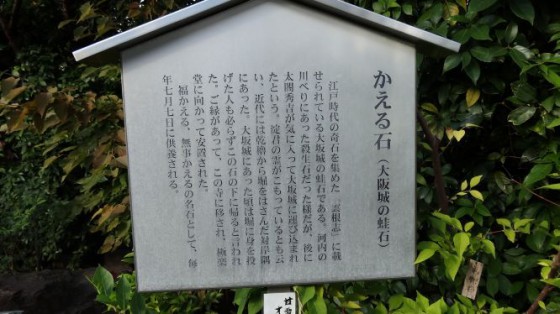 かえる石（大阪城の蛙石）
江戸時代の奇石を集めた『雲根志』に載
せられている大坂城の蛙石である。河内の
川べりにあった殺生石だった様だが、後に
太閤秀吉が気に入って大坂城に運び込まれ
たという。淀君の霊がこもっているとも云
い、近代には乾櫓から堀をはさんだ対岸隅
にあった。大坂城にあった頃は堀に身を投
げた人も必らずこの石の下に帰ると言われ
た。ご縁があって、この寺に移され、極楽
堂に向かって安置された。
福かえる、無事かえるの名石として、毎
年七月七日に供養される。